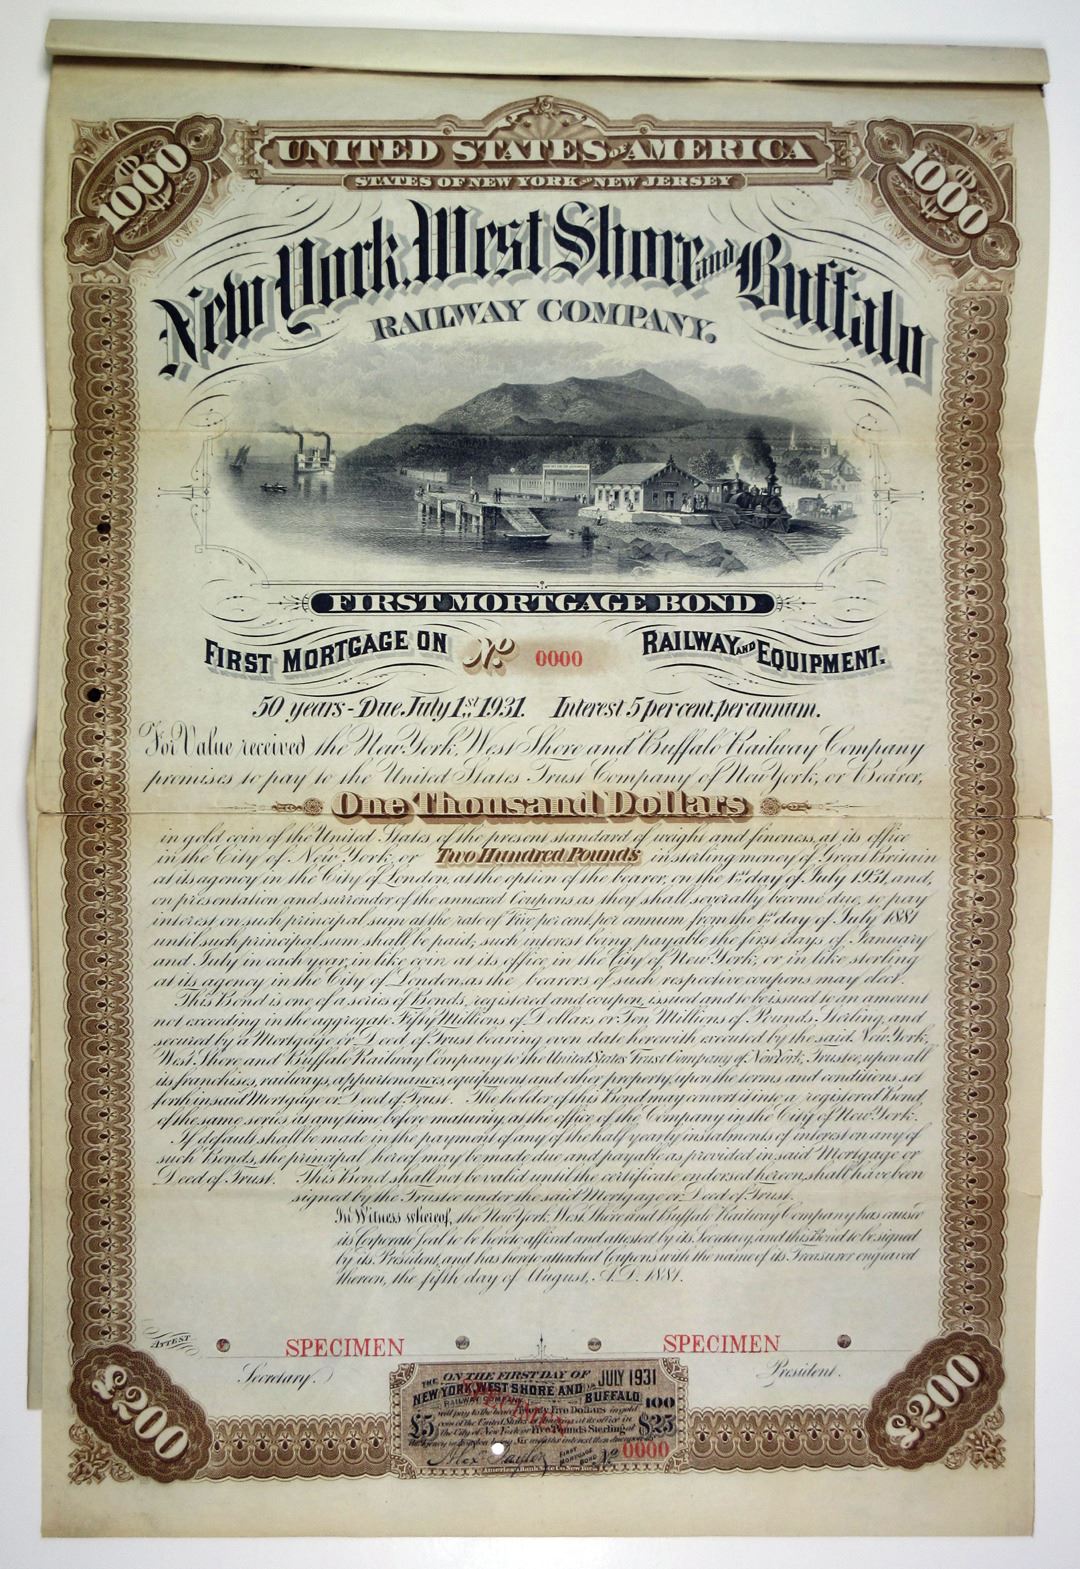 $1000
UNITED STATES OF AMERICA
$1000
STATES OF NEW YORK AND NEW JERSEY
New York, West Shore and Buffalo
RAILWAY COMPANY.
FIRST MORTGAGE BOND
FIRST MORTGAGE ON No 0000 RAILWAY AND EQUIPMENT.
50 years - Due July 1st, 1931. Interest 5 per cent. per annum.
For Value received the New York, West Shore and Buffalo Railway Company
promises to pay to the United States Trust Company of New York, or Bearer,
One Thousand Dollars
in gold coin of the United States of the present standard of weight and fineness, at its office
in the City of New York, or Two Hundred Pounds in sterling money of Great Britain
at its agency in the City of London, at the option of the bearer, on the 1st day of July 1931, and,
on presentation and surrender of the annexed Coupons as they shall severally become due, to pay
interest on such principal sum at the rate of Five per cent. per annum from the 1st day of July 1881
until such principal sum shall be paid; such interest being payable the first days of January
and July in each year, in like coin at its office in the City of New York, or in like sterling
at its agency in the City of London as the bearers of such respective coupons may elect.
This Bond is one of a series of Bonds, registered and coupon, issued and to be issued to an amount
not exceeding in the aggregate Fifty Millions of Dollars or Ten Millions of Pounds Sterling, and
secured by a Mortgage or Deed of Trust bearing even date herewith executed by the said New York,
West Shore and Buffalo Railway Company to the United States Trust Company of New York, Trustee, upon all
its franchises, railways, appurtenances, equipment and other property, upon the terms and conditions set
forth in said Mortgage or Deed of Trust. The holder of this Bond may convert it into a registered Bond,
of the same series at any time before maturity, at the office of the Company in the City of New York.
If default shall be made in the payment of any of the half yearly instalments of interest on any of
such Bonds, the principal hereof may be made due and payable as provided in said Mortgage or
Deed of Trust. This Bond shall not be valid until the certificate endorsed hereon, shall have been
signed by the Trustee under the said Mortgage or Deed of Trust.
In Witness whereof, the New York, West Shore and Buffalo Railway Company has caused
its Corporate Seal to be hereto affixed and attested by its Secretary, and this Bond to be signed
by its President, and has hereto attached Coupons with the name of its Treasurer engraved
thereon, the fifth day of August, A.D. 1881.
ATTEST
SPECIMEN SPECIMEN
Secretary. President.
£200
£200
ON THE FIRST DAY OF JULY 1931
THE NEW YORK, WEST SHORE AND BUFFALO
RAILWAY COMPANY 100
will pay to the bearer Twenty Five Dollars in gold
coin of the United States of America at its office in
£5 the City of New York or Five Pounds Sterling at $25
its agency in London being Six months interest then due on its
Alex Taylor FIRST MORTGAGE BOND No 0000
American Bank Note Co. New York